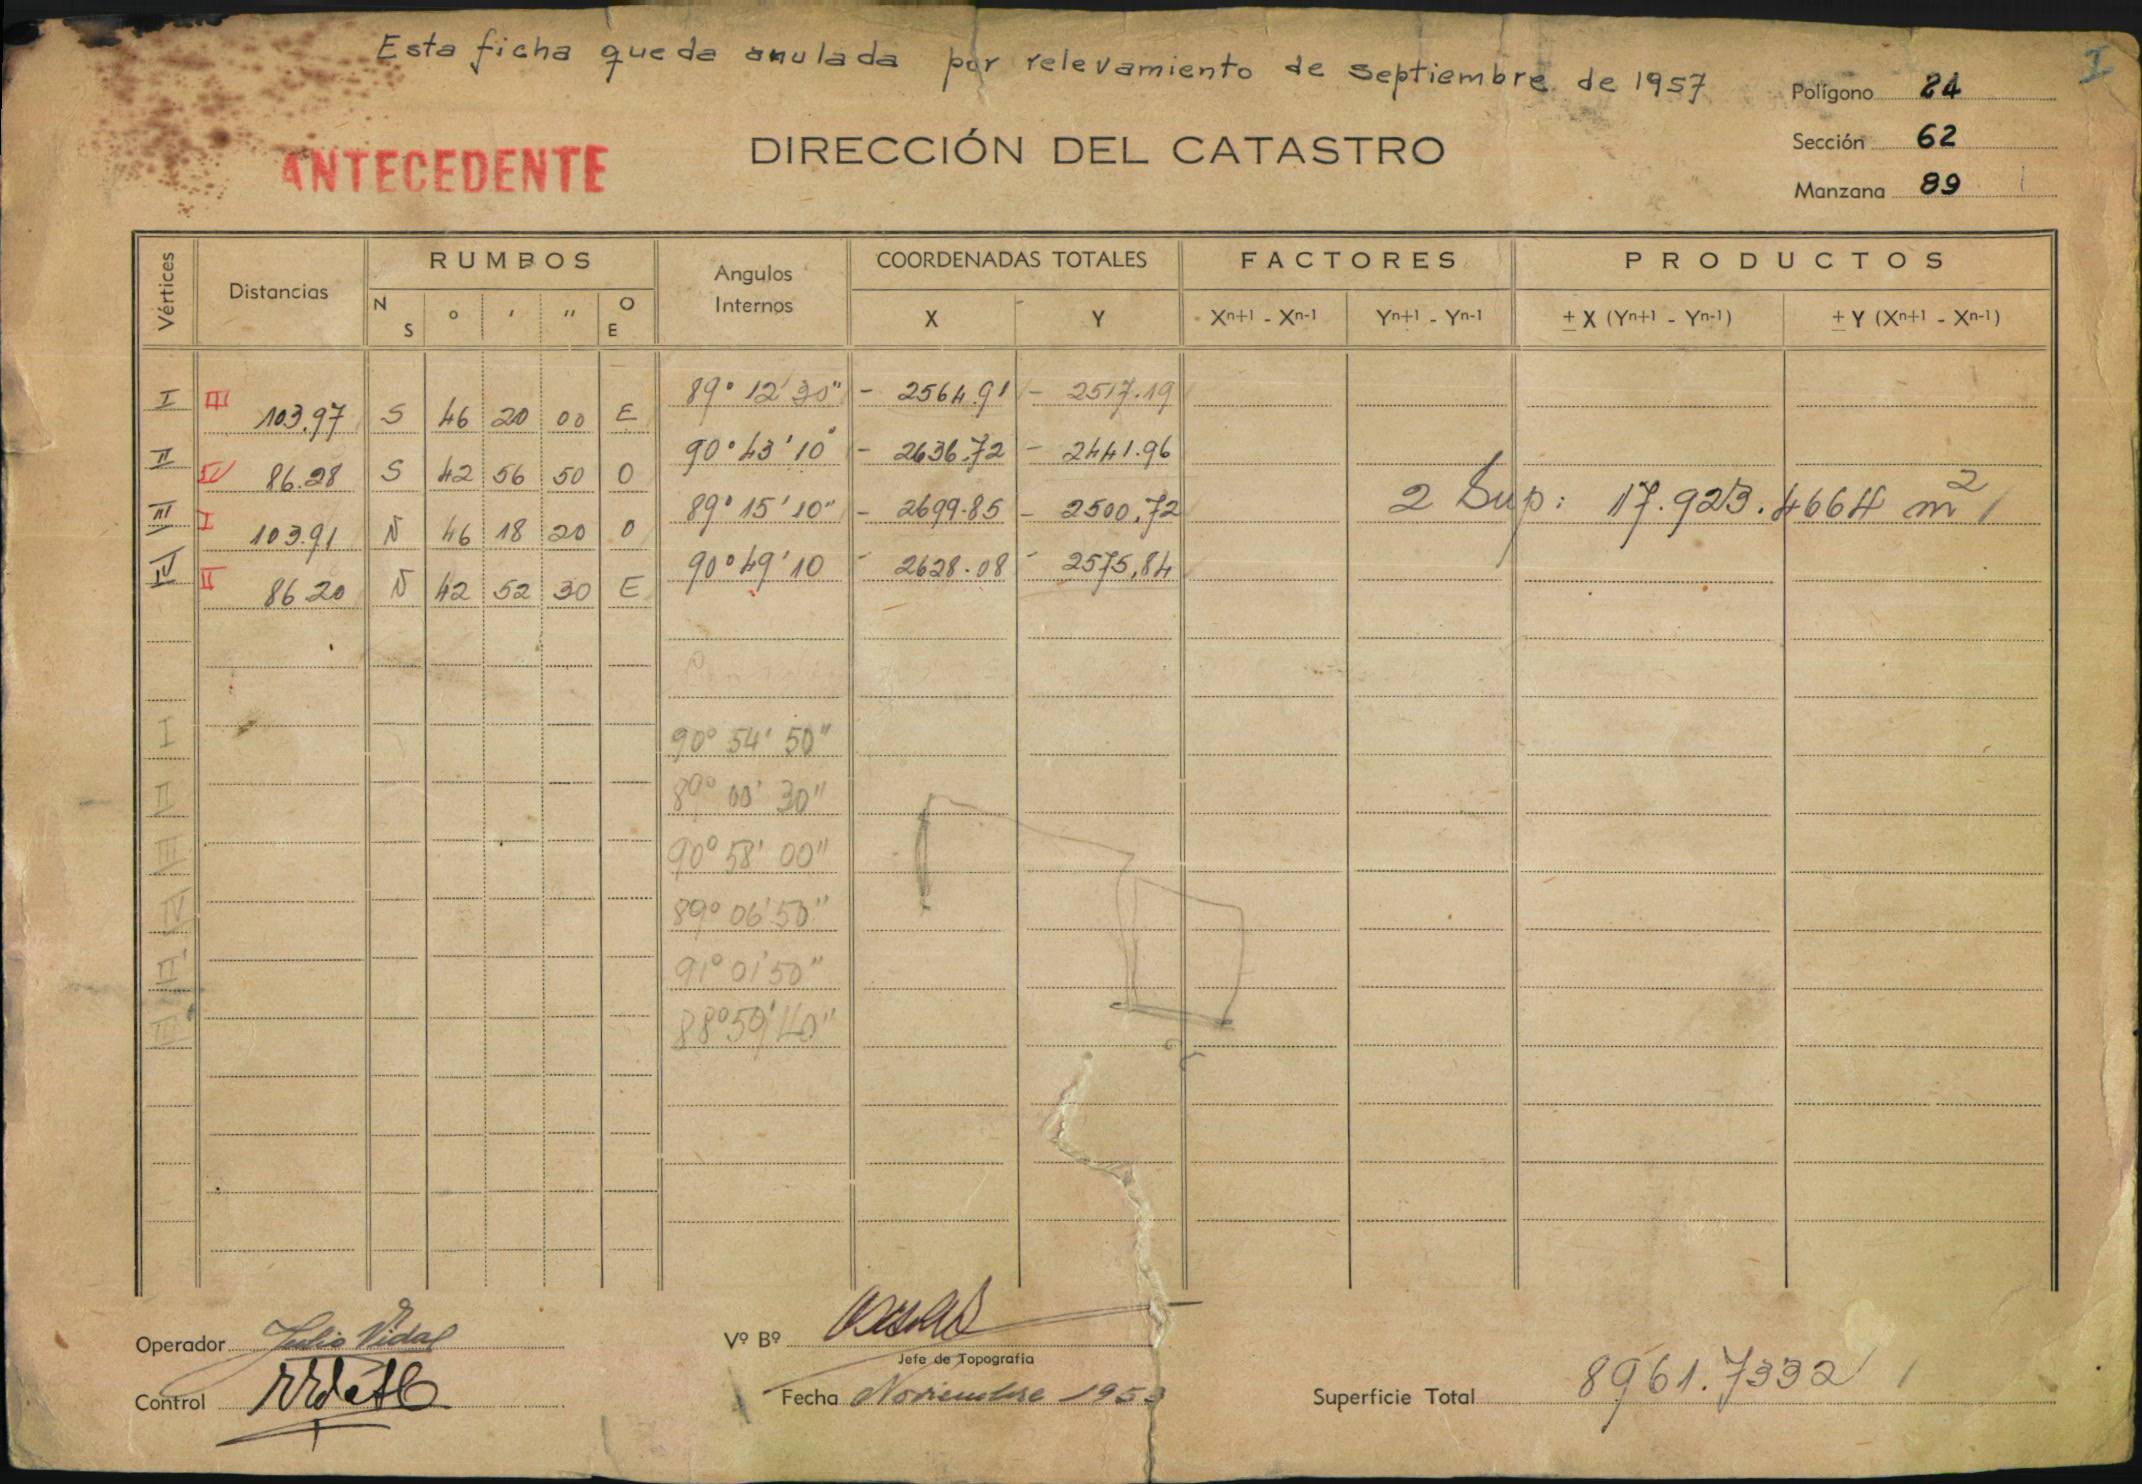 Esta ficha queda anulada por relevamiento de septiembre de 1957
I
Polígono 24
Sección 62
Manzana 89
ANTECEDENTE
DIRECCIÓN DEL CATASTRO
Vértices Distancias RUMBOS Angulos Internos COORDENADAS TOTALES FACTORES PRODUCTOS
N S ° ' " O E X Y Xn+1 - Xn-1 Yn+1 - Yn-1 ± X (Yn+1 - Yn-1) ± Y (Xn+1 - Xn-1)
I III 89° 12' 30" - 2564.91 - 2517.19
103.97 S 46 20 00 E
II IV 90° 43' 10" - 2636.72 - 2441.96
86.28 S 42 56 50 O
III I 89° 15' 10" - 2699.85 - 2500.72
2 Sup: 17.923.4664 m2
103.91 N 46 18 20 O
IV II 90° 49' 10 - 2628.08 - 2575,84
86 20 N 42 52 30 E
I 90° 54' 50"
II 89° 00' 30"
III 90° 58' 00"
IV 89° 06' 50"
II' 91° 01' 50"
III' 88° 59' 40"
Operador Julio Vidal
Vº Bº
Jefe de Topografía
Control
Fecha Noviembre 1953
Superficie Total 8961.7332